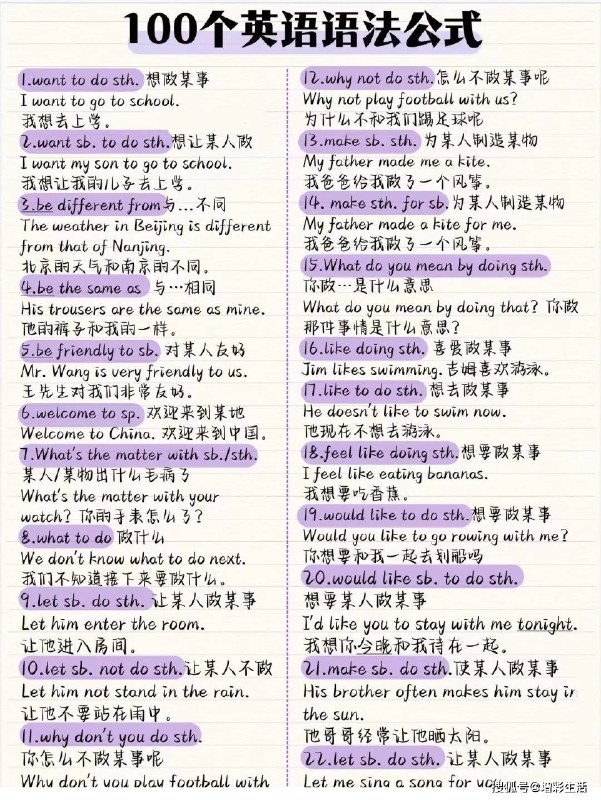 100个英语语法公式
1.want to do sth. 想做某事
I want to go to school.
我想去上学。
2.want sb. to do sth.想让某人做
I want my son to go to school.
我想让我的儿子去上学。
3.be different from与…不同
The weather in Beijing is different
from that of Nanjing.
北京的天气和南京的不同。
4.be the same as 与…相同
His trousers are the same as mine.
他的裤子和我的一样。
5.be friendly to sb. 对某人友好
Mr. Wang is very friendly to us.
王先生对我们非常友好。
6.welcome to sp. 欢迎来到某地
Welcome to China. 欢迎来到中国。
7.What's the matter with sb./sth.
某人/某物出什么毛病了
What's the matter with your
watch? 你的手表怎么了?
8.what to do 做什么
We don't know what to do next.
我们不知道接下来要做什么。
9.let sb. do sth. 让某人做某事
Let him enter the room.
让他进入房间。
10.let sb. not do sth.让某人不做
Let him not stand in the rain.
让他不要站在雨中。
11.why don't you do sth.
你怎么不做某事呢
Why don't you play football with
12.why not do sth.怎么不做某事呢
Why not play football with us?
为什么不和我们踢足球呢
13.make sb. sth. 为某人制造某物
My father made me a kite.
我爸爸给我做了一个风筝。
14. make sth. for sb.为某人制造某物
My father made a kite for me.
我爸爸给我做了一个风筝。
15.What do you mean by doing sth.
你做…是什么意思
What do you mean by doing that? 你做
那件事情是什么意思?
16.like doing sth. 喜爱做某事
Jim likes swimming. 吉姆喜欢游泳。
17.like to do sth. 想去做某事
He doesn't like to swim now.
他现在不想去游泳。
18.feel like doing sth.想要做某事
I feel like eating bananas.
我想要吃香蕉。
19.would like to do sth.想要做某事
Would you like to go rowing with me?
你想要和我一起去划船吗
20.would like sb. to do sth.
想要某人做某事
I'd like you to stay with me tonight.
我想你今晚和我待在一起。
21.make sb. do sth.使某人做某事
His brother often makes him stay in
the sun.
他哥哥经常让他晒太阳。
22.let sb. do sth. 让某人做某事
Let me sing a song for you
搜狐号@瑁彩生活